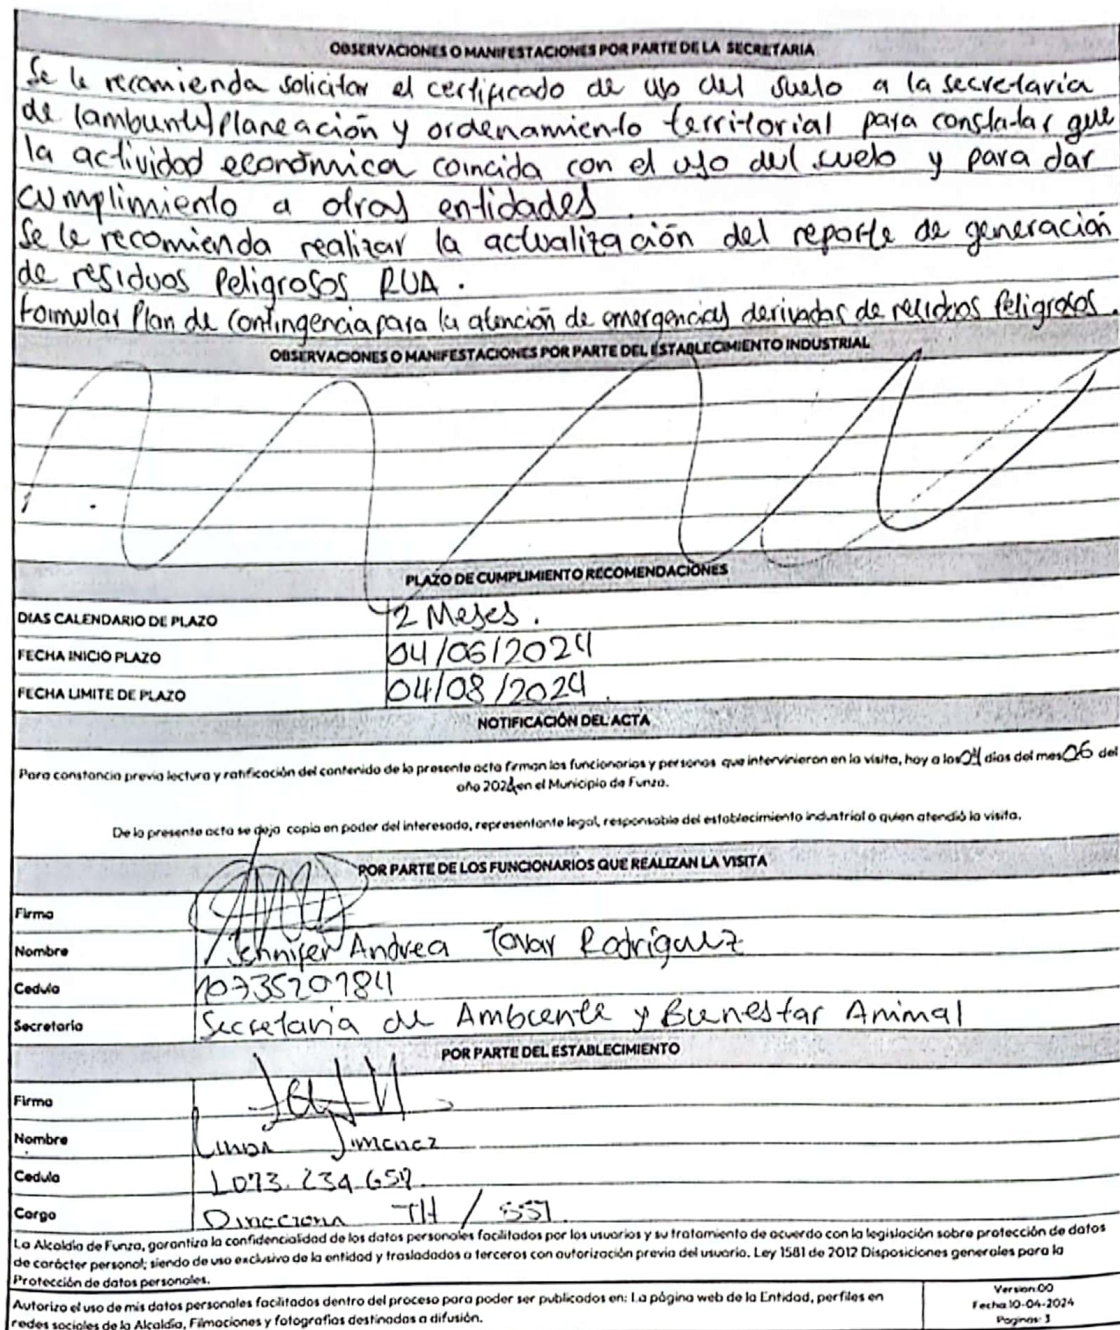 OBSERVACIONES O MANIFESTACIONES POR PARTE DE LA SECRETARIA
Se le recomienda solicitar el certificado de uso del suelo a la secretaria
de (ambiente) Planeación y ordenamiento territorial para constatar que
la actividad económica coincida con el uso del suelo y para dar
cumplimiento a otras entidades.
Se le recomienda realizar la actualización del reporte de generación
de residuos Peligrosos RUA.
Formular Plan de Contingencia para la atención de emergencias derivadas de residuos Peligrosos.
OBSERVACIONES O MANIFESTACIONES POR PARTE DEL ESTABLECIMIENTO INDUSTRIAL
PLAZO DE CUMPLIMIENTO RECOMENDACIONES
DIAS CALENDARIO DE PLAZO 2 Meses.
FECHA INICIO PLAZO 04/06/2024
FECHA LIMITE DE PLAZO 04/08/2024.
NOTIFICACIÓN DEL ACTA
Para constancia previa lectura y ratificación del contenido de la presente acta firman los funcionarios y personas que intervinieron en la visita, hoy a los 04 dias del mes 06 del
año 2024 en el Municipio de Funza.
De la presente acta se deja copia en poder del interesado, representante legal, responsable del establecimiento industrial o quien atendió la visita.
POR PARTE DE LOS FUNCIONARIOS QUE REALIZAN LA VISITA
Firma
Nombre Jennifer Andrea Tovar Rodríguez
Cedula 1073520784
Secretaria Secretaria de Ambiente y Bienestar Animal
POR PARTE DEL ESTABLECIMIENTO
Firma
Nombre Jimenez
Cedula 1.073.234.657.
Cargo TH / SST
La Alcaldía de Funza, garantiza la confidencialidad de los datos personales facilitados por los usuarios y su tratamiento de acuerdo con la legislación sobre protección de datos
de carácter personal; siendo de uso exclusivo de la entidad y trasladados a terceros con autorización previa del usuario. Ley 1581 de 2012 Disposiciones generales para la
Protección de datos personales.
Autorizo el uso de mis datos personales facilitados dentro del proceso para poder ser publicados en: La página web de la Entidad, perfiles en
redes sociales de la Alcaldía, Filmaciones y fotografías destinadas a difusión.
Version:00
Fecha:10-04-2024
Paginas: 3